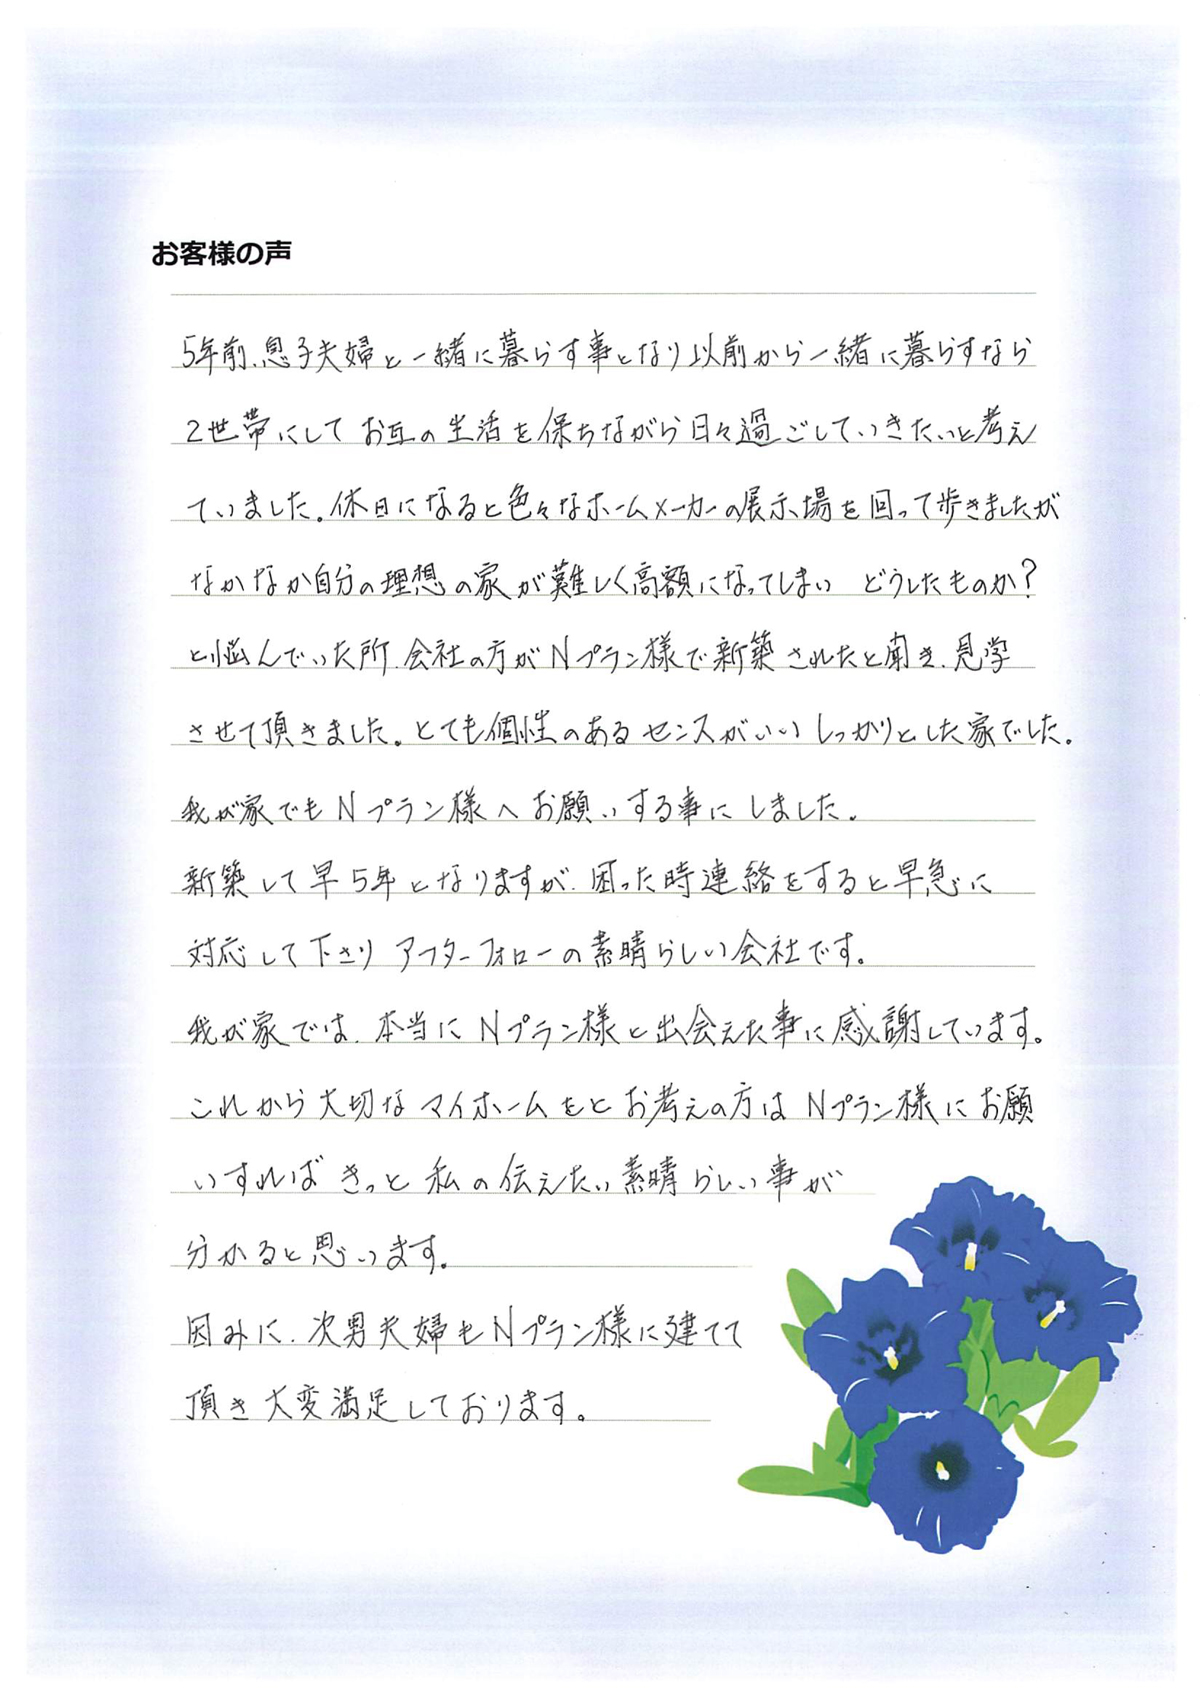 お客様の声
5年前、息子夫婦と一緒に暮らす事となり以前から一緒に暮らすなら
2世帯にしてお互の生活を保ちながら日々過ごしていきたいと考え
ていました。休日になると色々なホームメーカーの展示場を回って歩きましたが
なかなか自分の理想の家が難しく高額になってしまい どうしたものか?
と悩んでいた所、会社の方がNプラン様で新築されたと聞き、見学
させて頂きました。とても個性のあるセンスがいいしっかりとした家でした。
我が家でもNプラン様へお願いする事にしました。
新築して早5年となりますが、困った時連絡をすると早急に
対応して下さり アフターフォローの素晴らしい会社です。
我が家では、本当にNプラン様と出会えた事に感謝しています。
これから大切なマイホームをとお考えの方はNプラン様にお願
いすればきっと私の伝えたい素晴らしい事が
分かると思います。
因みに、次男夫婦もNプラン様に建てて
頂き大変満足しております。